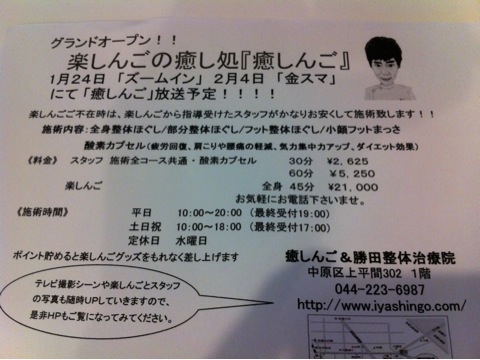 グランドオープン！！
楽しんごの癒し処『癒しんご』
1月24日 「ズームイン」 2月4日 「金スマ」
にて「癒しんご」放送予定！！！！
楽しんごご不在時は、楽しんごから指導受けたスタッフがかなりお安くして施術致します！！
施術内容:全身整体ほぐし/部分整体ほぐし/フット整体ほぐし/小顔フットまっさ
酸素カプセル(疲労回復、肩こりや腰痛の軽減、気力集中力アップ、ダイエット効果)
《料金》 スタッフ 施術全コース共通・酸素カプセル 30分 ¥2,625
60分 ¥5,250
楽しんご 全身 45分 ¥21,000
お気軽にお電話下さいませ。
《施術時間》 平日 10:00～20:00 (最終受付19:00)
土日祝 10:00～18:00 (最終受付17:00)
定休日 水曜日
ポイント貯めると楽しんごグッズをもれなく差し上げます
癒しんご＆勝田整体治療院
中原区上平間302 1階
044-223-6987
http://www.iyashingo.com/
テレビ撮影シーンや楽しんごとスタッフ
の写真も随時UPしていきますので、
是非HPもご覧になってみてください。